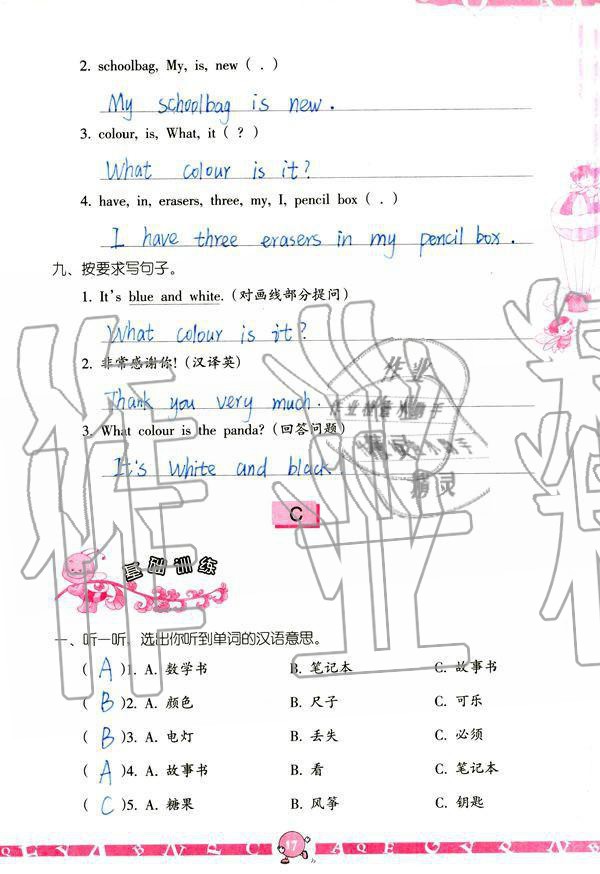 2. schoolbag, My, is, new ( . )
My schoolbag is new.
3. colour, is, What, it ( ? )
What colour is it?
4. have, in, erasers, three, my, I, pencil box ( . )
I have three erasers in my pencil box.
九、按要求写句子。
1. It's blue and white.(对画线部分提问)
What colour is it?
2. 非常感谢你!(汉译英)
Thank you very much.
3. What colour is the panda?(回答问题)
It's white and black.
C
基础训练
一、听一听,选出你听到单词的汉语意思。
( A )1. A. 数学书 B. 笔记本 C. 故事书
( B )2. A. 颜色 B. 尺子 C. 可乐
( B )3. A. 电灯 B. 丢失 C. 必须
( A )4. A. 故事书 B. 看 C. 笔记本
( C )5. A. 糖果 B. 风筝 C. 钥匙
17